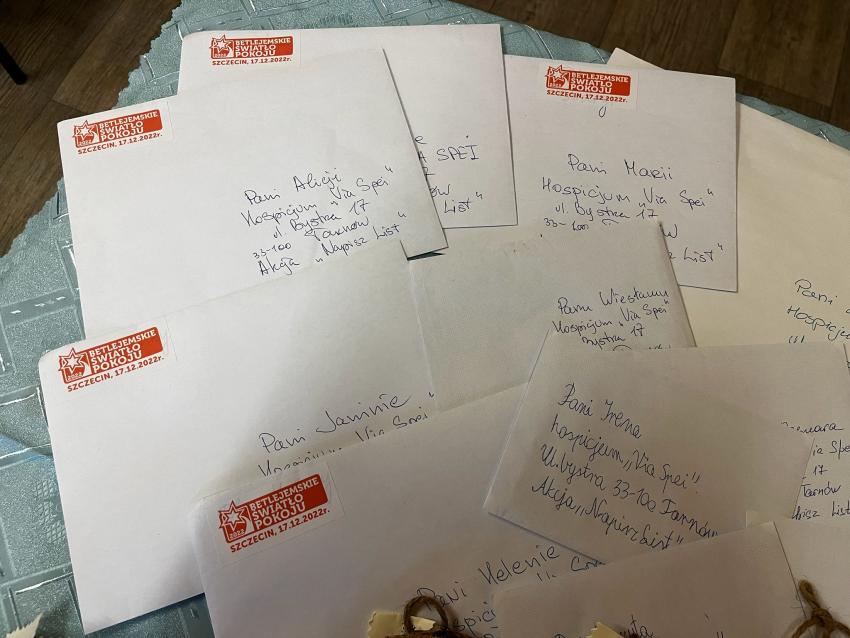 BETLEJEMSKIE
ŚWIATŁO
POKOJU
2022
SZCZECIN, 17.12.2022r.
Pani Alicji
Hospicjum "Via Spei"
ul. Bystra 17
33-100 Tarnów
Akcja "Napisz List"
BETLEJEMSKIE
ŚWIATŁO
POKOJU
2022
SZCZECIN, 17.12.2022r.
SPEI
List"
BETLEJEMSKIE
ŚWIATŁO
POKOJU
2022
SZCZECIN, 17.12.2022r.
Pani Marii
Hospicjum "Via Spei"
ul. Bystra 17
33-100
List"
Pani
Hospicjum
BETLEJEMSKIE
ŚWIATŁO
POKOJU
2022
SZCZECIN, 17.12.2022r.
Pani Janinie
Hospicjum "Via Spei"
Panu Wiesławu
Hospicjum "Via Spei"
Bystra 17
Pani Irena
hospicjum,,Via Spei"
Ul.bystra 33-100 Tarnów
Akcja,,Napisz List"
Spei
17
Tarnów
List
BETLEJEMSKIE
ŚWIATŁO
POKOJU
2022
SZCZECIN, 17.12.2022r.
Pani Helenie